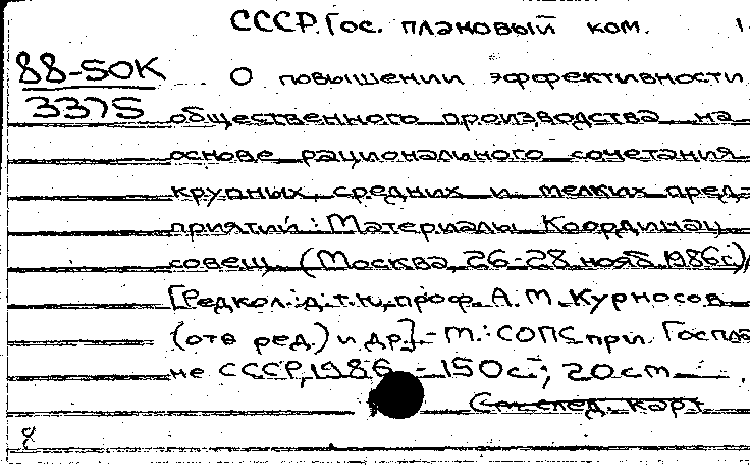 СССР. Гос. плановый ком. 1.
88-50К
3375
О повышении эффективности
общественного производства на
основе рационального сочетания
крупных, средних и мелких пред-
приятий: Материалы Координац.
совещ. (Москва, 26-28 нояб. 1986г.)/
[Редкол.: д.т.н., проф. А. М. Курносов
(отв ред.) и др.]. - М.: СОПС при Госпла
не СССР, 1986. - 150 с.; 20 см
См. след. карт